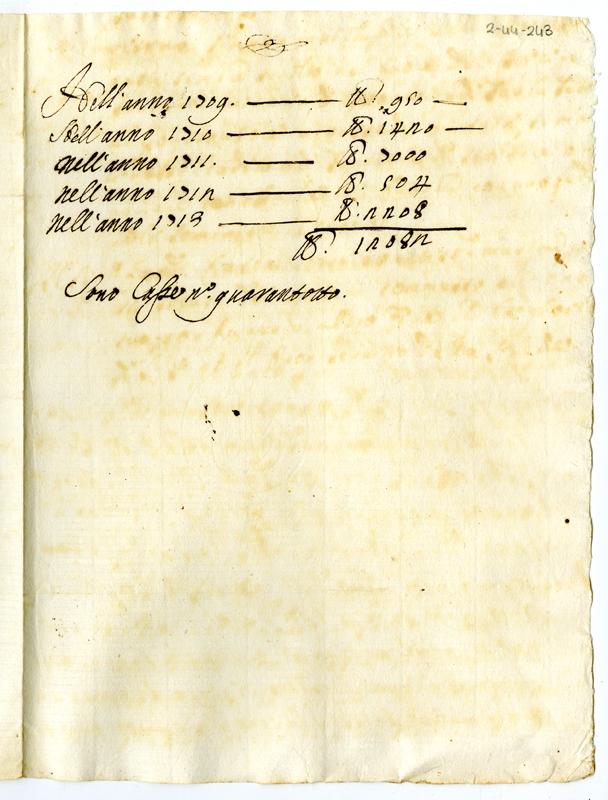 2-44-243
Nell'anno 1709. ——— ℔. 950 —
Nell'anno 1710 ——— ℔. 1420 —
nell'anno 1711. ——— ℔. 7000
nell'anno 1712 ——— ℔. 504
nell'anno 1713 ——— ℔. 2208
℔. 12082
Sono Casse n.o quarantotto.